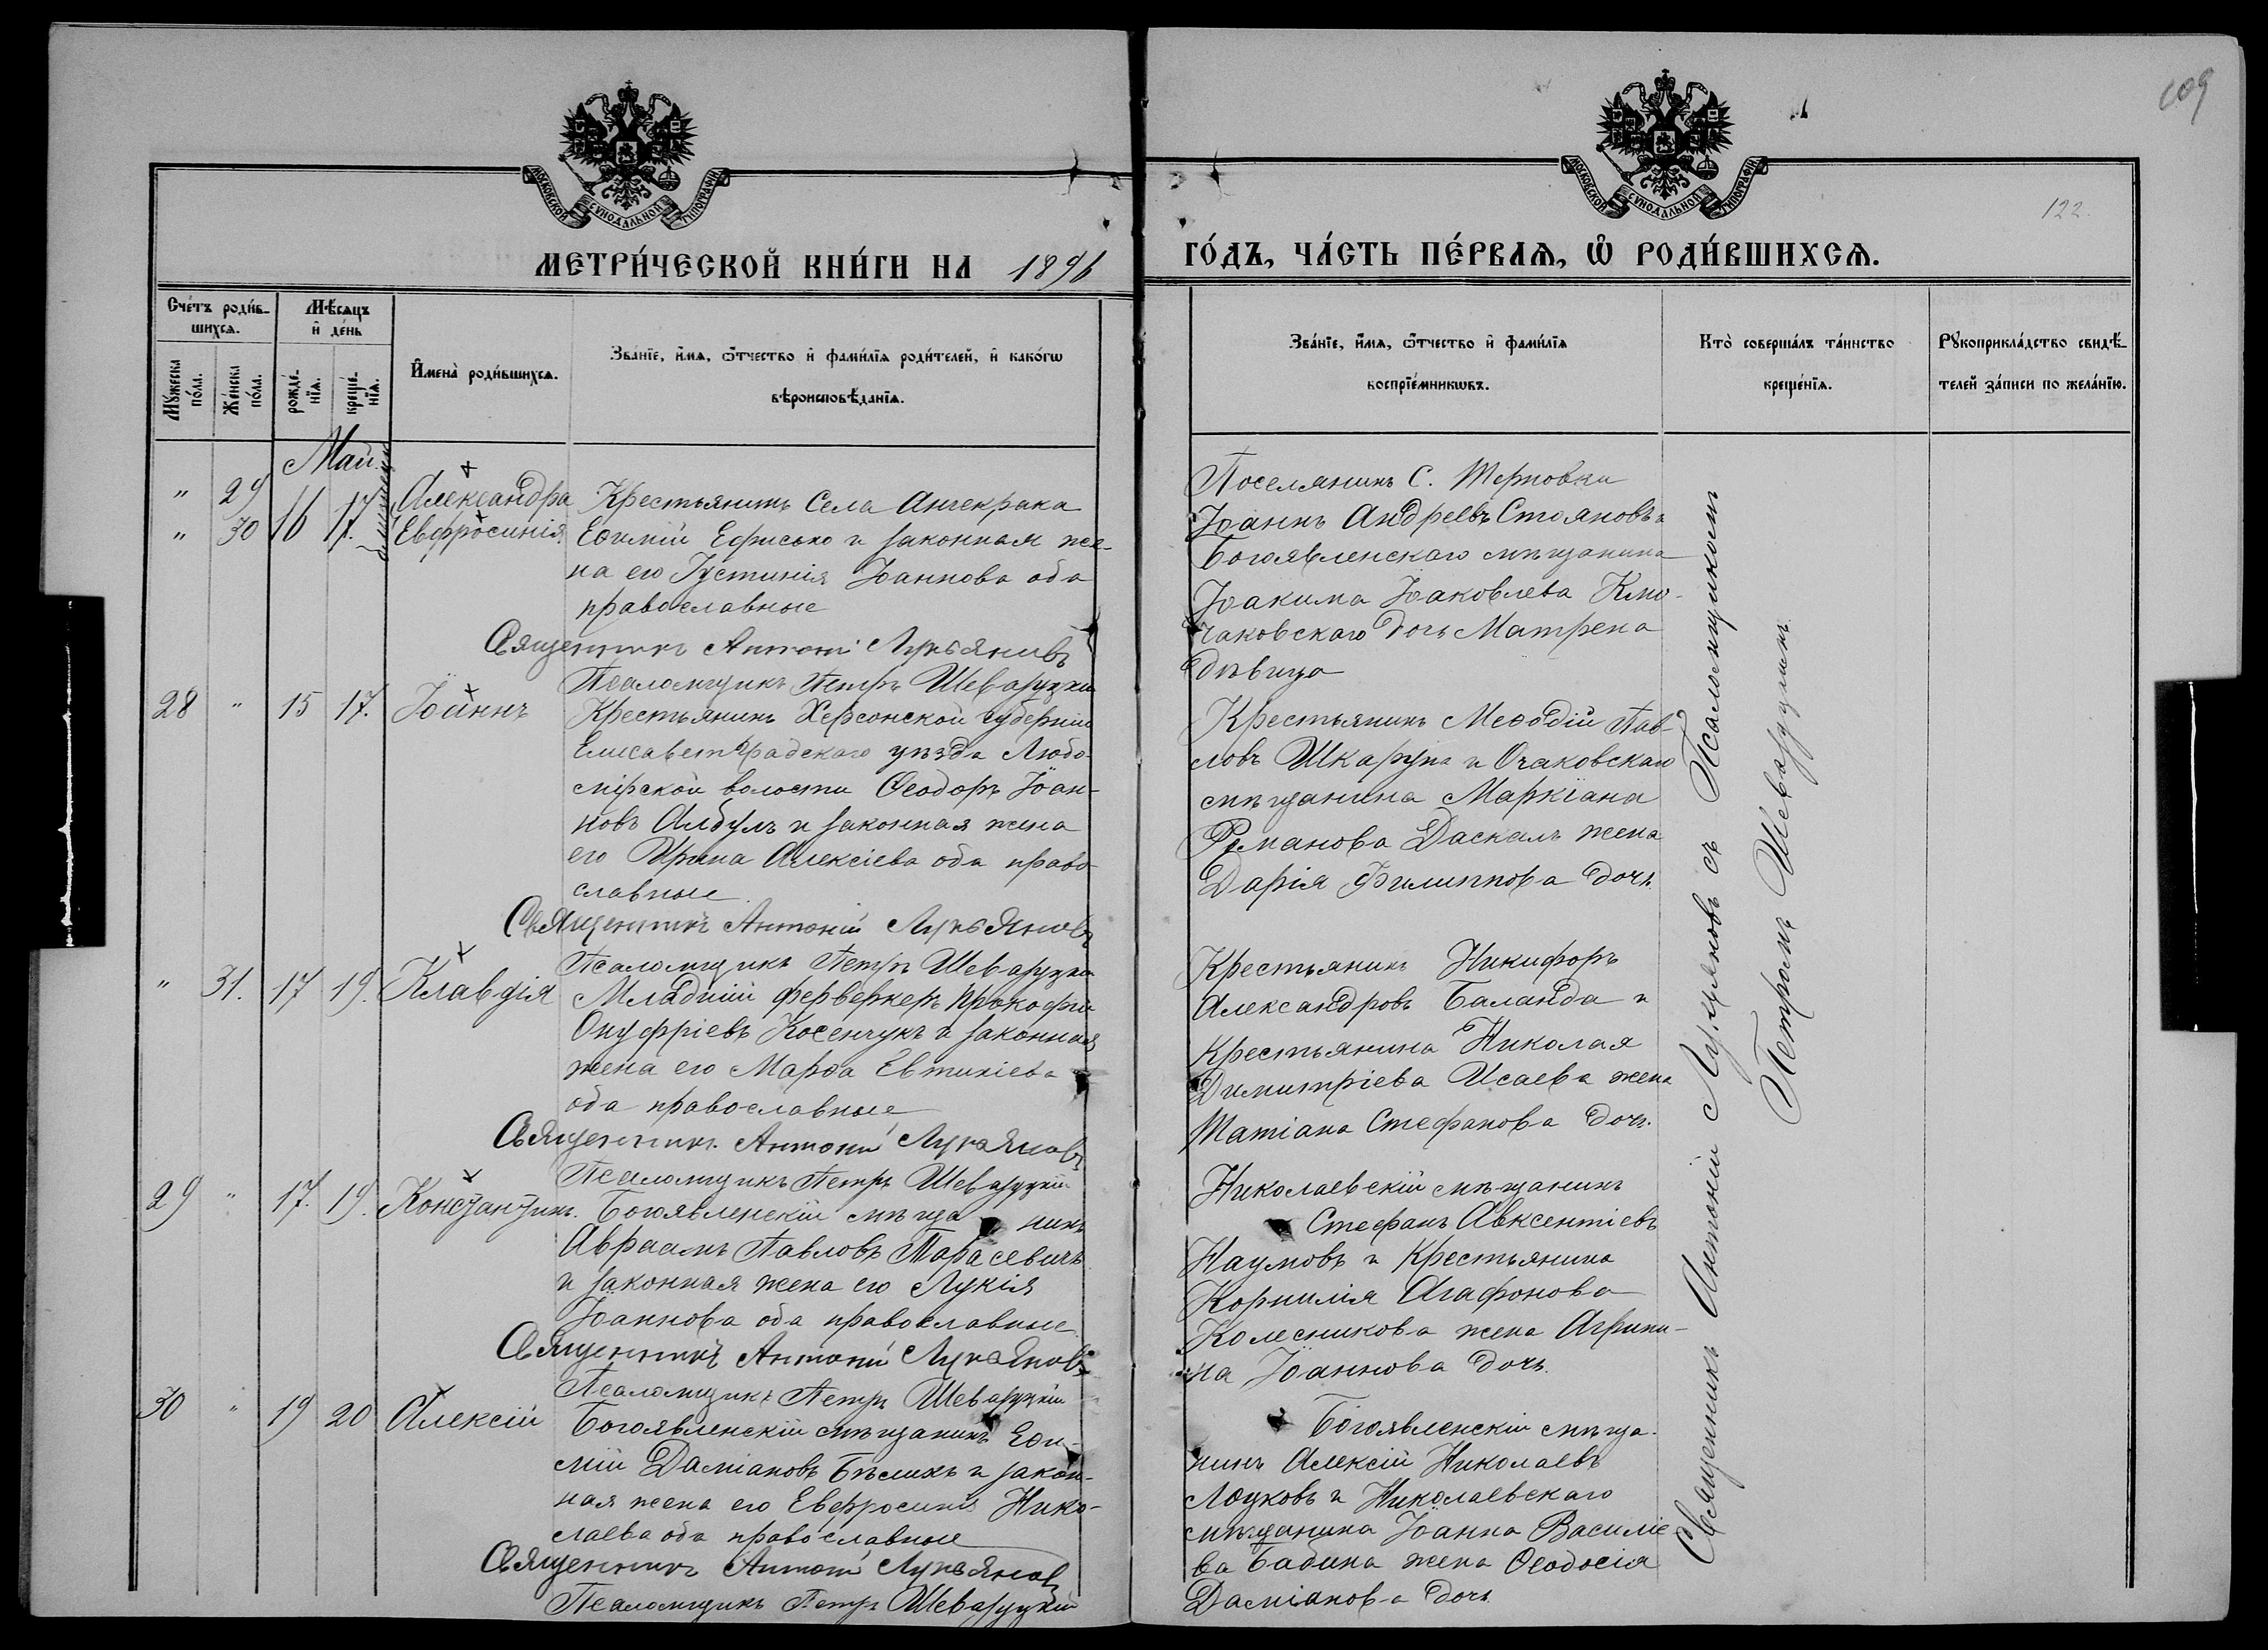 109
122.
МОСКОВСКОЙ СѴНОДАЛЬНОЙ ТИПОГРАФІИ
МОСКОВСКОЙ СѴНОДАЛЬНОЙ ТИПОГРАФІИ
МЕТРИ́ЧЕСКОЙ КНИ́ГИ НА 1896 ГО́ДЪ, ЧА́СТЬ ПЕ́РВАѦ, Ѡ҆ РОДИ́ВШИХСѦ.
Сче́тъ роди́в-
шихсѧ.
Мꙋ́жеска по́ла.
Же́нска по́ла.
Мѣ́сѧцъ
и҆ де́нь
рожде́-нїѧ.
креще́-нїѧ.
И҆мена̀ роди́вшихсѧ.
Зва́нїе, и҆́мѧ, ѻ҆́тчество и҆ фами́лїѧ роди́телей, и҆ како́гѡ
вѣроисповѣ́данїѧ.
Зва́нїе, и҆́мѧ, ѻ҆́тчество и҆ фами́лїѧ
воспрїе́мникѡвъ.
Кто̀ соверша́лъ та́инство
креще́нїѧ.
Рꙋкоприкла́дство свидѣ́-
телей за́писи по жела́нїю.
Май.
" 29 Александра
" 30 16 17. Евфросинія.
Крестьянинъ Села Анчекрака
Еѳимій Ефисько и законная же-
на его Іустинія Іоаннова оба
православные
Священникъ Антоній Лукьяновъ
Псаломщикъ Петръ Шеваруцкій
Поселянинъ С. Терновки
Іоаннъ Андреевъ Стояновъ и
Богоявленскаго мѣщанина
Іоакима Іаковлева Клю-
чаковскаго дочь Матрена
дѣвица
28 " 15 17. Іоаннъ
Крестьянинъ Херсонской губерніи
Елисаветградскаго уѣзда Любо-
мірской волости Ѳеодоръ Іоан-
новъ Албулъ и законная жена
его Ирина Алексіева оба право-
славные.
Священникъ Антоній Лукьяновъ
Псаломщикъ Петръ Шеваруцкій
Крестьянинъ Меѳодій Пав-
ловъ Шкарупа и Очаковскаго
мѣщанина Маркіана
Романова Даскалъ жена
Дарія Филиппова дочь.
" 31. 17 19. Клавдія
Младшій фервверкеръ Прокофій
Онуфріевъ Косенчукъ и законная
жена его Марѳа Евтихіева
оба православные
Священникъ Антоній Лукьяновъ
Псаломщикъ Петръ Шеваруцкій
Крестьянинъ Никифоръ
Александровъ Баланда и
Крестьянина Николая
Димитріева Исаева жена
Татіана Стефанова дочь.
29 " 17. 19. Константинъ.
Богоявленскій мѣщанинъ
Авраамъ Павловъ Тарасевичъ
и законная жена его Лукія
Іоаннова оба православные.
Священникъ Антоній Лукьяновъ
Псаломщикъ Петръ Шеваруцкій
Николаевскій мѣщанинъ
Стефанъ Авксентіевъ
Наумовъ и Крестьянина
Корнилія Агафонова
Колесникова жена Агрипи-
на Іоаннова дочь.
30 " 19 20 Алексій
Богоявленскій мѣщанинъ Еѳи-
мій Даміановъ Бѣликъ и закон-
ная жена его Евфросинія Нико-
лаева оба православные
Священникъ Антоній Лукьяновъ
Псаломщикъ Петръ Шеваруцкій
Богоявленскій мѣща-
нинъ Алексій Николаевъ
и Николаевскаго
мѣщанина Іоанна Василіе
ва Бабина жена Ѳеодосія
Даміанова дочь
Священникъ Антоній Лукьяновъ съ Псаломщикомъ
Петромъ Шеваруцкимъ.